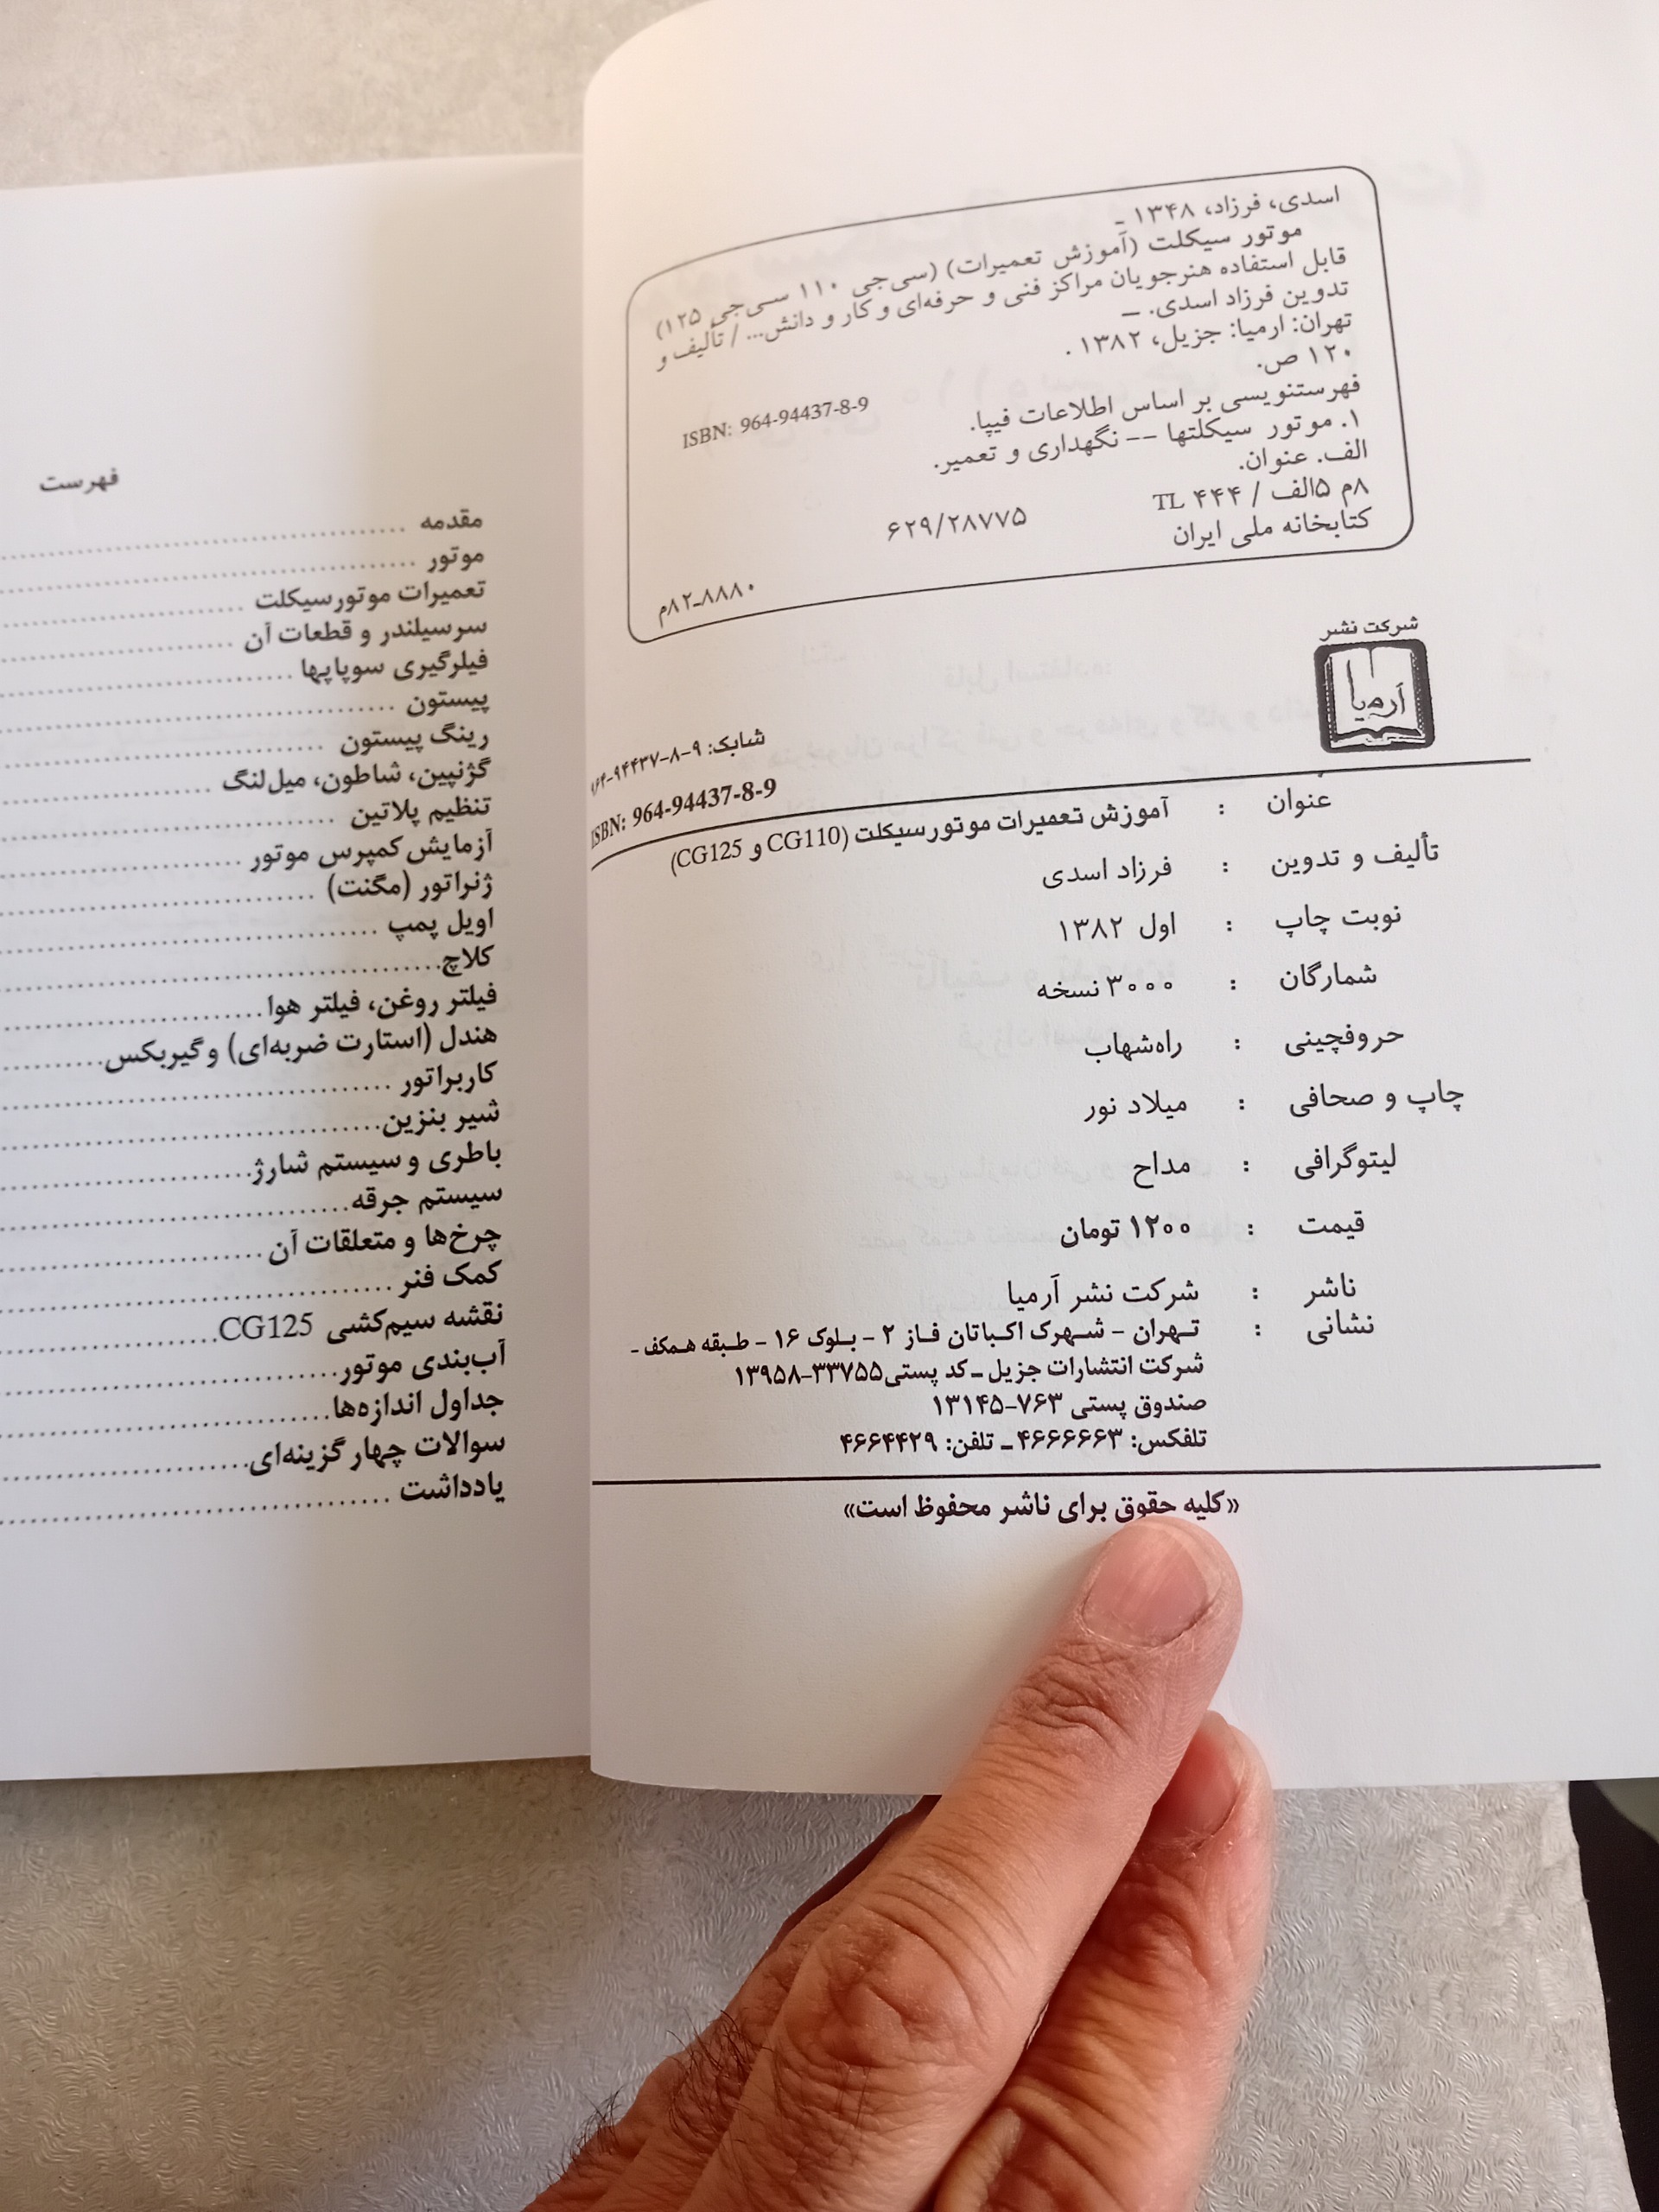 اسدی، فرزاد، ۱۳۴۸ ـ
موتور سیکلت (آموزش تعمیرات) (سی‌جی ۱۱۰ سی‌جی ۱۲۵)
قابل استفاده هنرجویان مراکز فنی و حرفه‌ای و کار و دانش... / تألیف و
تدوین فرزاد اسدی. ـ
تهران: ارمیا: جزیل، ۱۳۸۲ .
۱۲۰ ص.
ISBN: 964-94437-8-9
فهرستنویسی بر اساس اطلاعات فیپا.
۱. موتور سیکلتها -- نگهداری و تعمیر.
الف. عنوان.
۸م ۵الف / ۴۴۴ TL
۶۲۹/۲۸۷۷۵
کتابخانه ملی ایران
۸۸۸۰ـ۸۲م
شرکت نشر
اَرمیا
شابک: ۹-۸-۹۴۴۳۷-۹۶۴
ISBN: 964-94437-8-9
عنوان : آموزش تعمیرات موتورسیکلت (CG110 و CG125)
تألیف و تدوین : فرزاد اسدی
نوبت چاپ : اول ۱۳۸۲
شمارگان : ۳۰۰۰ نسخه
حروفچینی : راه‌شهاب
چاپ و صحافی : میلاد نور
لیتوگرافی : مداح
قیمت : ۱۲۰۰ تومان
ناشر : شرکت نشر اَرمیا
نشانی : تهران - شهرک اکباتان فاز ۲ - بلوک ۱۶ - طبقه همکف -
شرکت انتشارات جزیل ـ کد پستی ۳۳۷۵۵-۱۳۹۵۸
صندوق پستی ۷۶۳-۱۳۱۴۵
تلفکس: ۴۶۶۶۶۶۳ ـ تلفن: ۴۶۶۴۴۲۹
«کلیه حقوق برای ناشر محفوظ است»
فهرست
مقدمه
موتور
تعمیرات موتورسیکلت
سرسیلندر و قطعات آن
فیلرگیری سوپاپها
پیستون
رینگ پیستون
گژنپین، شاطون، میل‌لنگ
تنظیم پلاتین
آزمایش کمپرس موتور
ژنراتور (مگنت)
اویل پمپ
کلاچ
فیلتر روغن، فیلتر هوا
هندل (استارت ضربه‌ای) و گیربکس
کاربراتور
شیر بنزین
باطری و سیستم شارژ
سیستم جرقه
چرخ‌ها و متعلقات آن
کمک فنر
نقشه سیم‌کشی CG125
آب‌بندی موتور
جداول اندازه‌ها
سوالات چهار گزینه‌ای
یادداشت